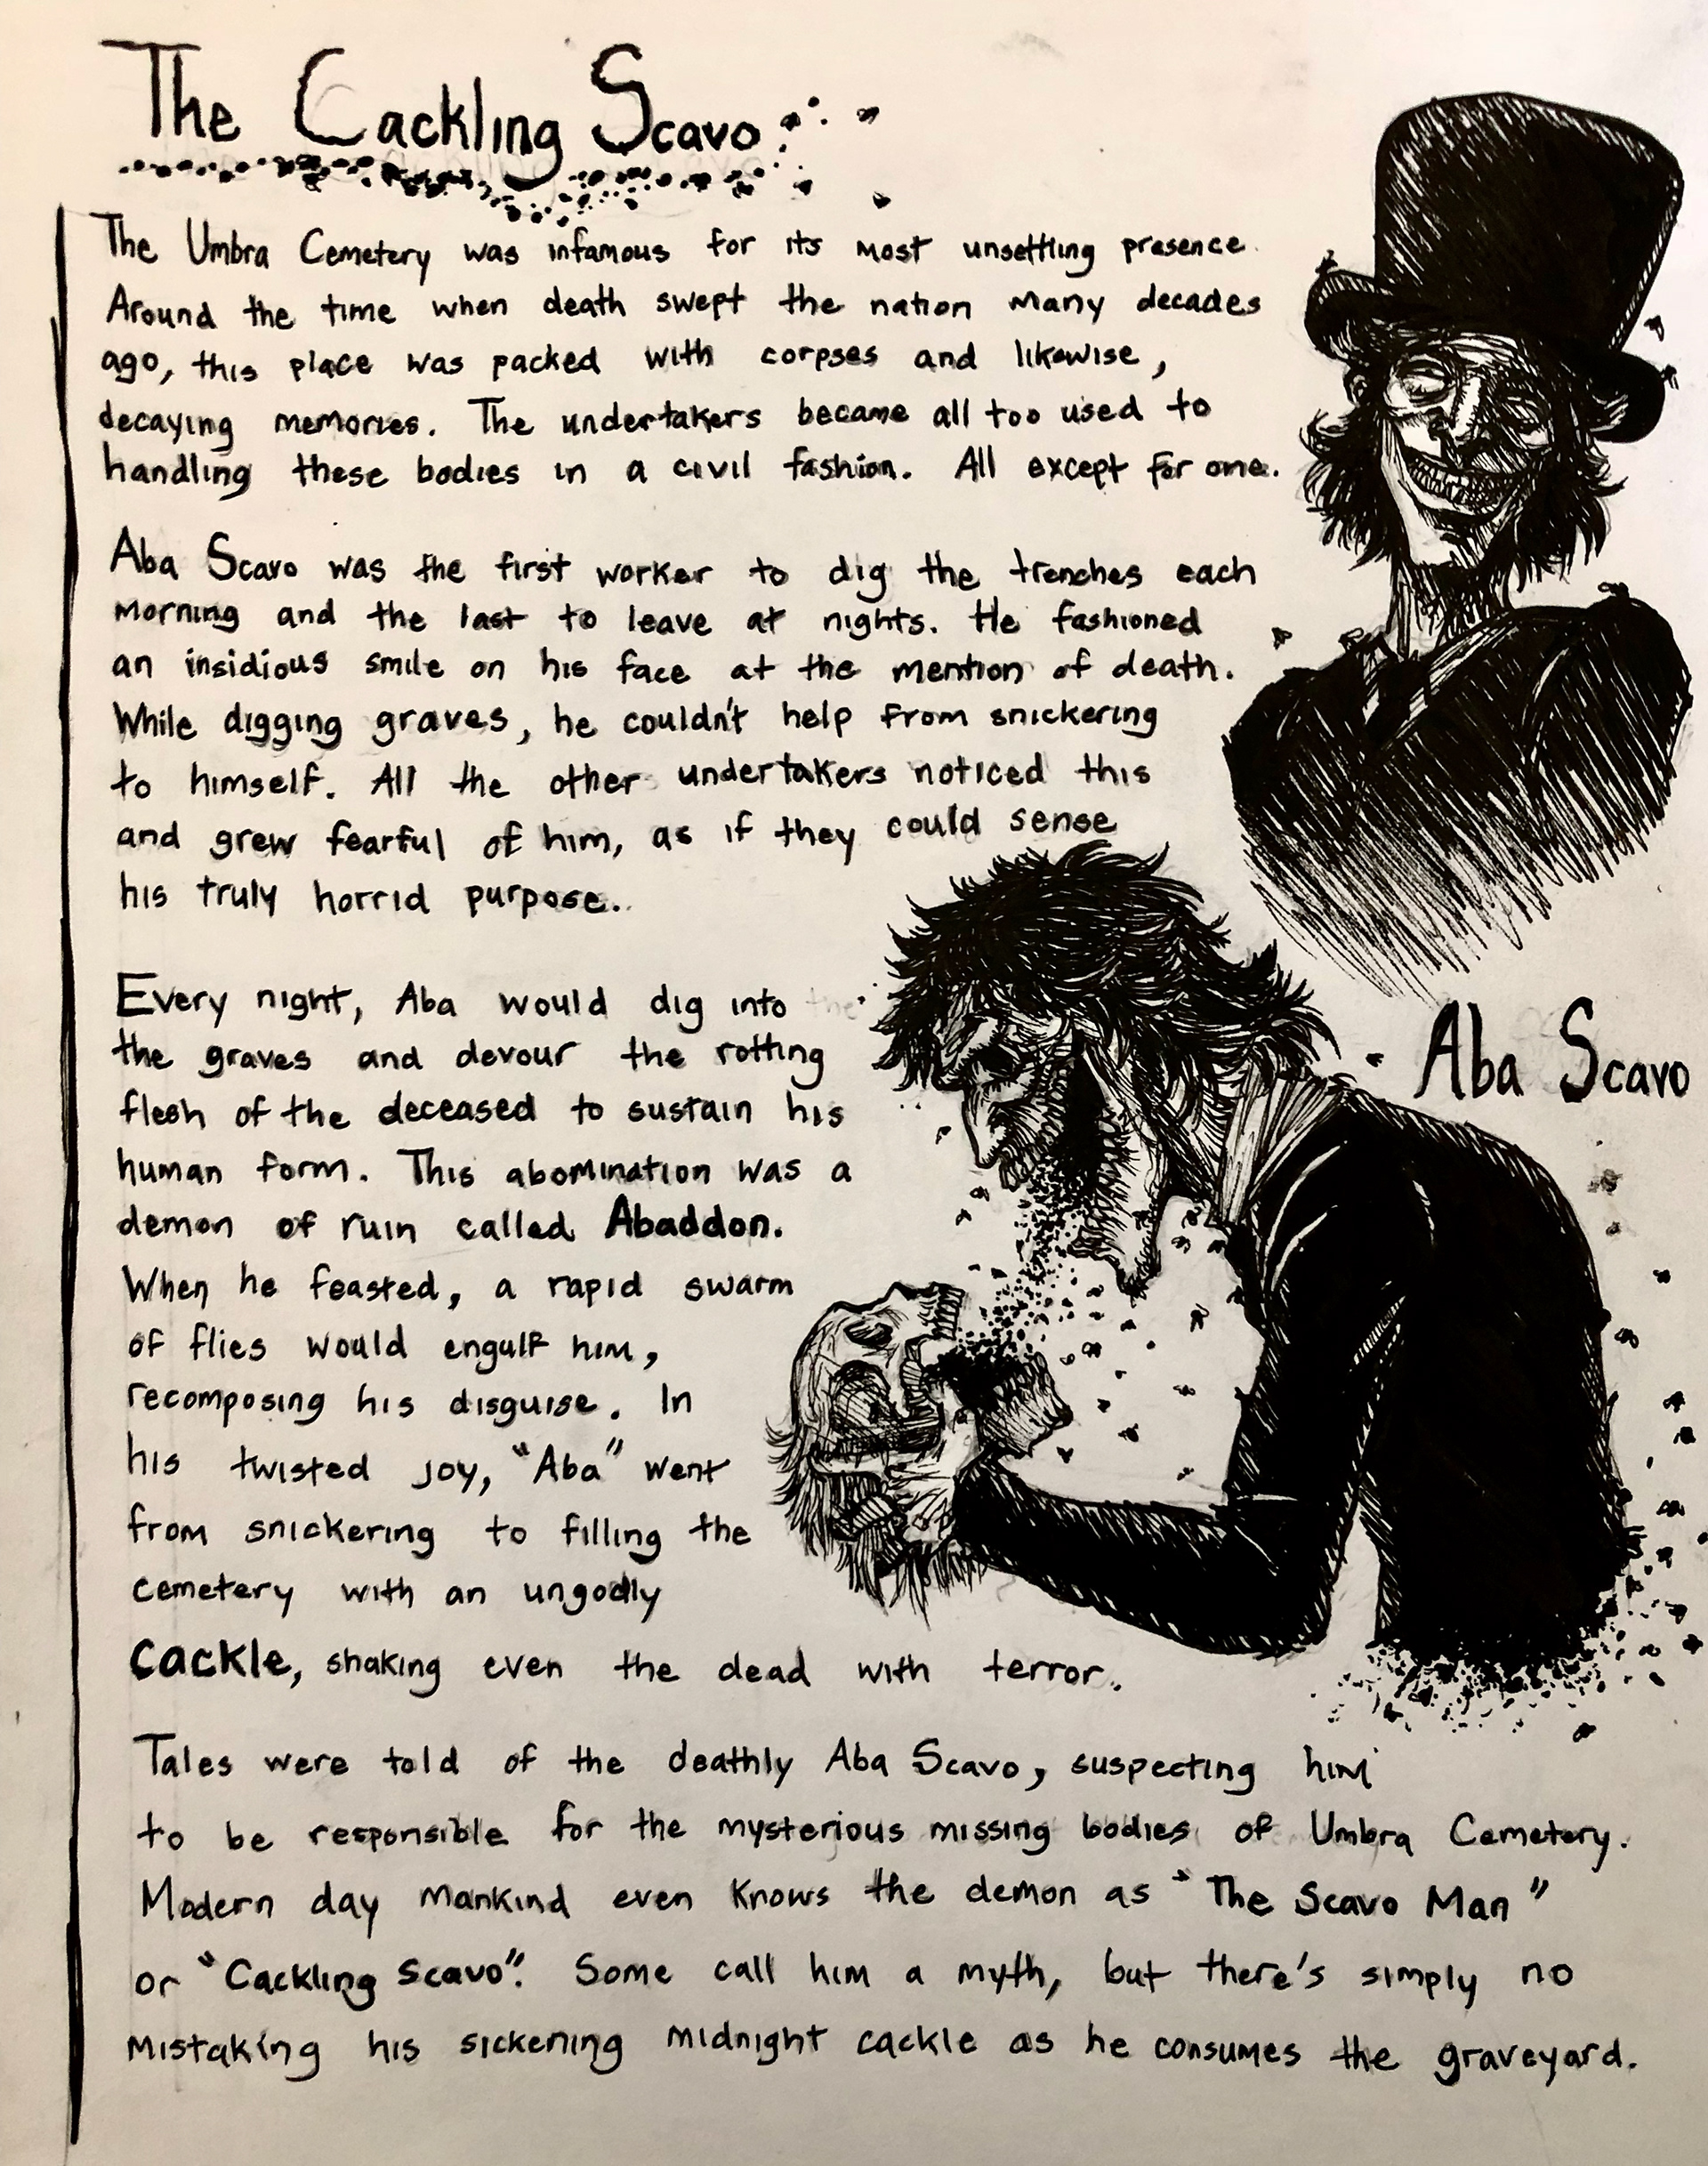 The Cackling Scavo
The Umbra Cemetery was infamous for its most unsettling presence.
Around the time when death swept the nation many decades
ago, this place was packed with corpses and likewise,
decaying memories. The undertakers became all too used to
handling these bodies in a civil fashion. All except for one.
Aba Scavo was the first worker to dig the trenches each
morning and the last to leave at nights. He fashioned
an insidious smile on his face at the mention of death.
While digging graves, he couldn't help from snickering
to himself. All the other undertakers noticed this
and grew fearful of him, as if they could sense
his truly horrid purpose.
Every night, Aba would dig into
the graves and devour the rotting
flesh of the deceased to sustain his
human form. This abomination was a
demon of ruin called Abaddon.
When he feasted, a rapid swarm
of flies would engulf him,
recomposing his disguise. In
his twisted joy, "Aba" went
from snickering to filling the
cemetery with an ungodly
cackle, shaking even the dead with terror.
Tales were told of the deathly Aba Scavo, suspecting him
to be responsible for the mysterious missing bodies of Umbra Cemetery.
Modern day mankind even knows the demon as "The Scavo Man"
or "Cackling Scavo". Some call him a myth, but there's simply no
mistaking his sickening midnight cackle as he consumes the graveyard.
Aba Scavo